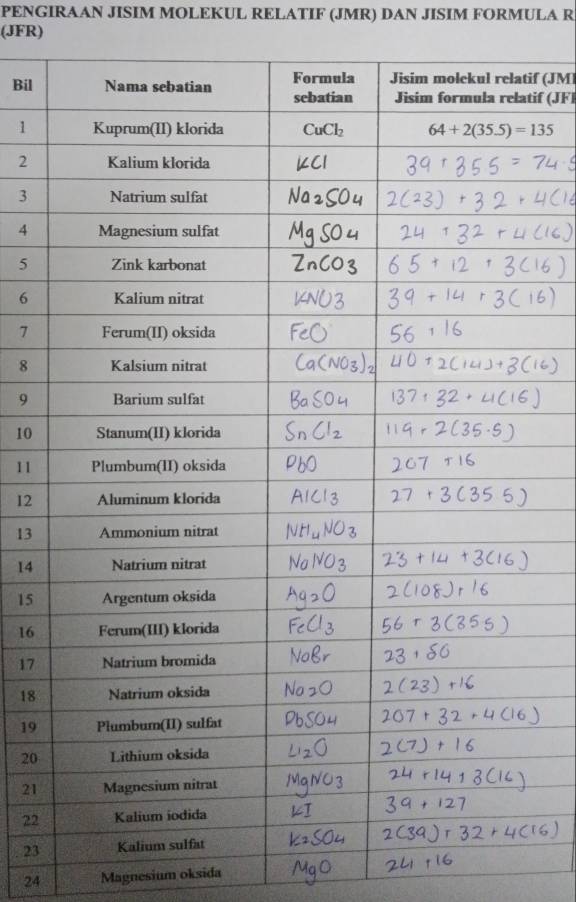 PENGIRAAN JISIM MOLEKUL RELATIF (JMR) DAN JISIM FORMULA R
(JFR)
Bil Nama sebatian Formula sebatian Jisim molekul relatif (JM Jisim formula relatif (JF
1 Kuprum(II) klorida CuCl₂ 64 + 2(35.5) = 135
2 Kalium klorida KCl 39 + 355 = 74.5
3 Natrium sulfat Na2SO4 2(23) + 32 + 4(16
4 Magnesium sulfat MgSO4 24 + 32 + 4(16)
5 Zink karbonat ZnCO3 65 + 12 + 3(16)
6 Kalium nitrat KNO3 39 + 14 + 3(16)
7 Ferum(II) oksida FeO 56 + 16
8 Kalsium nitrat Ca(NO3)2 40 + 2(14)+3(16)
9 Barium sulfat BaSO4 137 + 32 + 4(16)
10 Stanum(II) klorida SnCl2 119 + 2(35.5)
11 Plumbum(II) oksida PbO 207 + 16
12 Aluminum klorida AlCl3 27 + 3(35 5)
13 Ammonium nitrat NH4NO3
14 Natrium nitrat NaNO3 23 + 14 + 3(16)
15 Argentum oksida Ag2O 2(108) + 16
16 Ferum(III) klorida FeCl3 56 + 3(355)
17 Natrium bromida NaBr 23 + 80
18 Natrium oksida Na2O 2(23) + 16
19 Plumbum(II) sulfat PbSO4 207 + 32 + 4(16)
20 Lithium oksida Li2O 2(7) + 16
21 Magnesium nitrat MgNO3 24 + 14 + 3(16)
22 Kalium iodida KI 39 + 127
23 Kalium sulfat K2SO4 2(39) + 32 + 4(16)
24 Magnesium oksida MgO 24 + 16